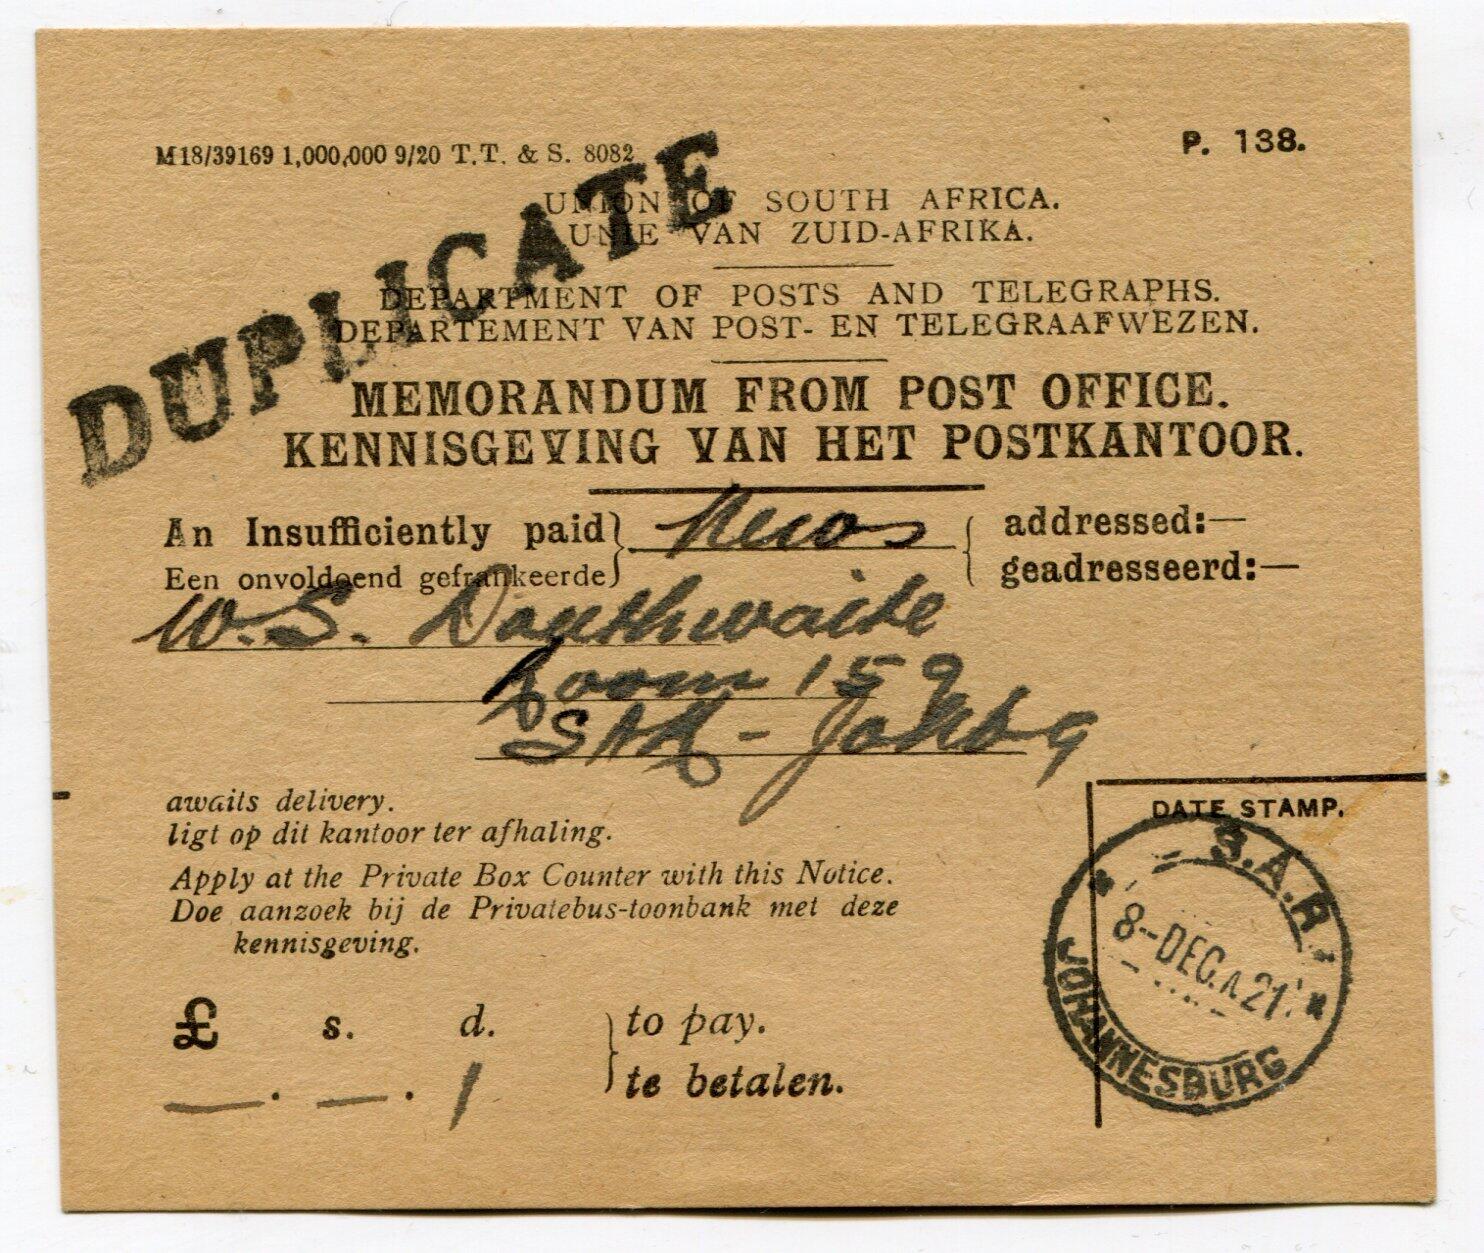 M18/39169 1,000,000 9/20 T.T. & S. 8082
P. 138.
DUPLICATE
UNION OF SOUTH AFRICA.
UNIE VAN ZUID-AFRIKA.
DEPARTMENT OF POSTS AND TELEGRAPHS.
DEPARTEMENT VAN POST- EN TELEGRAAFWEZEN.
MEMORANDUM FROM POST OFFICE.
KENNISGEVING VAN HET POSTKANTOOR.
An Insufficiently paid } News { addressed:—
Een onvoldoend gefrankeerde } { geadresseerd:—
W.S. Douthwaite
Room 159
SAR - Johbg
awaits delivery.
ligt op dit kantoor ter afhaling.
Apply at the Private Box Counter with this Notice.
Doe aanzoek bij de Privatebus-toonbank met deze
kennisgeving.
DATE STAMP.
S.A.R
8-DEC.A21
JOHANNESBURG
£ s. d. } to pay.
— . — . 1 } te betalen.